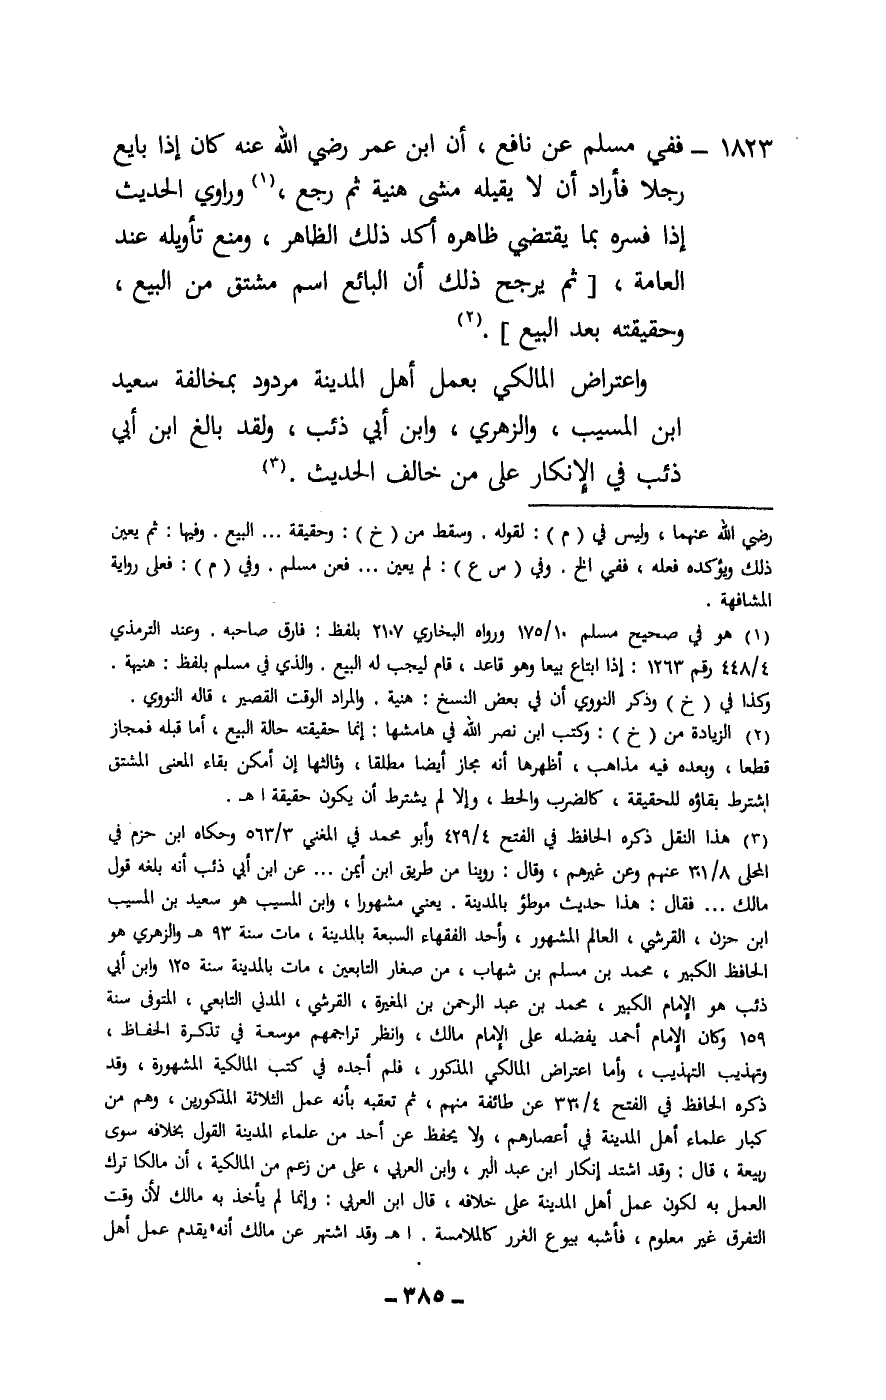 ١٨٢٣ ـ ففي مسلم عن نافع ، أن ابن عمر رضي الله عنه كان إذا بايع
رجلا فأراد أن لا يقيله مشى هنية ثم رجع ،(١) وراوي الحديث
إذا فسره بما يقتضي ظاهره أكد ذلك الظاهر ، ومنع تأويله عند
العامة ، [ ثم يرجح ذلك أن البائع اسم مشتق من البيع ،
وحقيقته بعد البيع ] .(٢)
واعتراض المالكي بعمل أهل المدينة مردود بمخالفة سعيد
ابن المسيب ، والزهري ، وابن أبي ذئب ، ولقد بالغ ابن أبي
ذئب في الإنكار على من خالف الحديث .(٣)
رضي الله عنهما ، وليس في ( م ) : لقوله . وسقط من ( خ ) : وحقيقة ... البيع . وفيها : ثم يعين
ذلك ويؤكده فعله ، ففي الخ . وفي ( س ع ) : لم يعين ... فعن مسلم . وفي ( م ) : فعلى رواية
المشافهة .
(١) هو في صحيح مسلم ١٧٥/١٠ ورواه البخاري ٢١٠٧ بلفظ : فارق صاحبه . وعند الترمذي
٤٤٨/٤ رقم ١٢٦٣ : إذا ابتاع بيعا وهو قاعد ، قام ليجب له البيع . والذي في مسلم بلفظ : هنيهة .
وكذا في ( خ ) وذكر النووي أن في بعض النسخ : هنية . والمراد الوقت القصير ، قاله النووي .
(٢) الزيادة من ( خ ) : وكتب ابن نصر الله في هامشها : إنما حقيقته حالة البيع ، أما قبله فمجاز
قطعا ، وبعده فيه مذاهب ، أظهرها أنه مجاز أيضا مطلقا ، وثالثها إن أمكن بقاء المعنى المشتق
اشترط بقاؤه للحقيقة ، كالضرب والحط ، وإلا لم يشترط أن يكون حقيقة ا هـ .
(٣) هذا النقل ذكره الحافظ في الفتح ٤٢٩/٤ وأبو محمد في المغني ٥٦٣/٣ وحكاه ابن حزم في
المحلى ٣٠١/٨ عنهم وعن غيرهم ، وقال : روينا من طريق ابن أيمن ... عن ابن أبي ذئب أنه بلغه قول
مالك ... فقال : هذا حديث موطؤ بالمدينة . يعني مشهورا ، وابن المسيب هو سعيد بن المسيب
ابن حزن ، القرشي ، العالم المشهور ، وأحد الفقهاء السبعة بالمدينة ، مات سنة ٩٣ هـ والزهري هو
الحافظ الكبير ، محمد بن مسلم بن شهاب ، من صغار التابعين ، مات بالمدينة سنة ١٢٥ وابن أبي
ذئب هو الإمام الكبير ، محمد بن عبد الرحمن بن المغيرة ، القرشي ، المدني التابعي ، المتوفى سنة
١٥٩ وكان الإمام أحمد يفضله على الإمام مالك ، وانظر تراجمهم موسعة في تذكرة الحفاظ ،
وتهذيب التهذيب ، وأما اعتراض المالكي المذكور ، فلم أجده في كتب المالكية المشهورة ، وقد
ذكره الحافظ في الفتح ٣٣٠/٤ عن طائفة منهم ، ثم تعقبه بأنه عمل الثلاثة المذكورين ، وهم من
كبار علماء أهل المدينة في أعصارهم ، ولا يحفظ عن أحد من علماء المدينة القول بخلافه سوى
ربيعة ، قال : وقد اشتد إنكار ابن عبد البر ، وابن العربي ، على من زعم من المالكية ، أن مالكا ترك
العمل به لكون عمل أهل المدينة على خلافه ، قال ابن العربي : وإنما لم يأخذ به مالك لأن وقت
التفرق غير معلوم ، فأشبه بيوع الغرر كالملامسة . ا هـ وقد اشتهر عن مالك أنه يقدم عمل أهل
ـ ٣٨٥ ـ